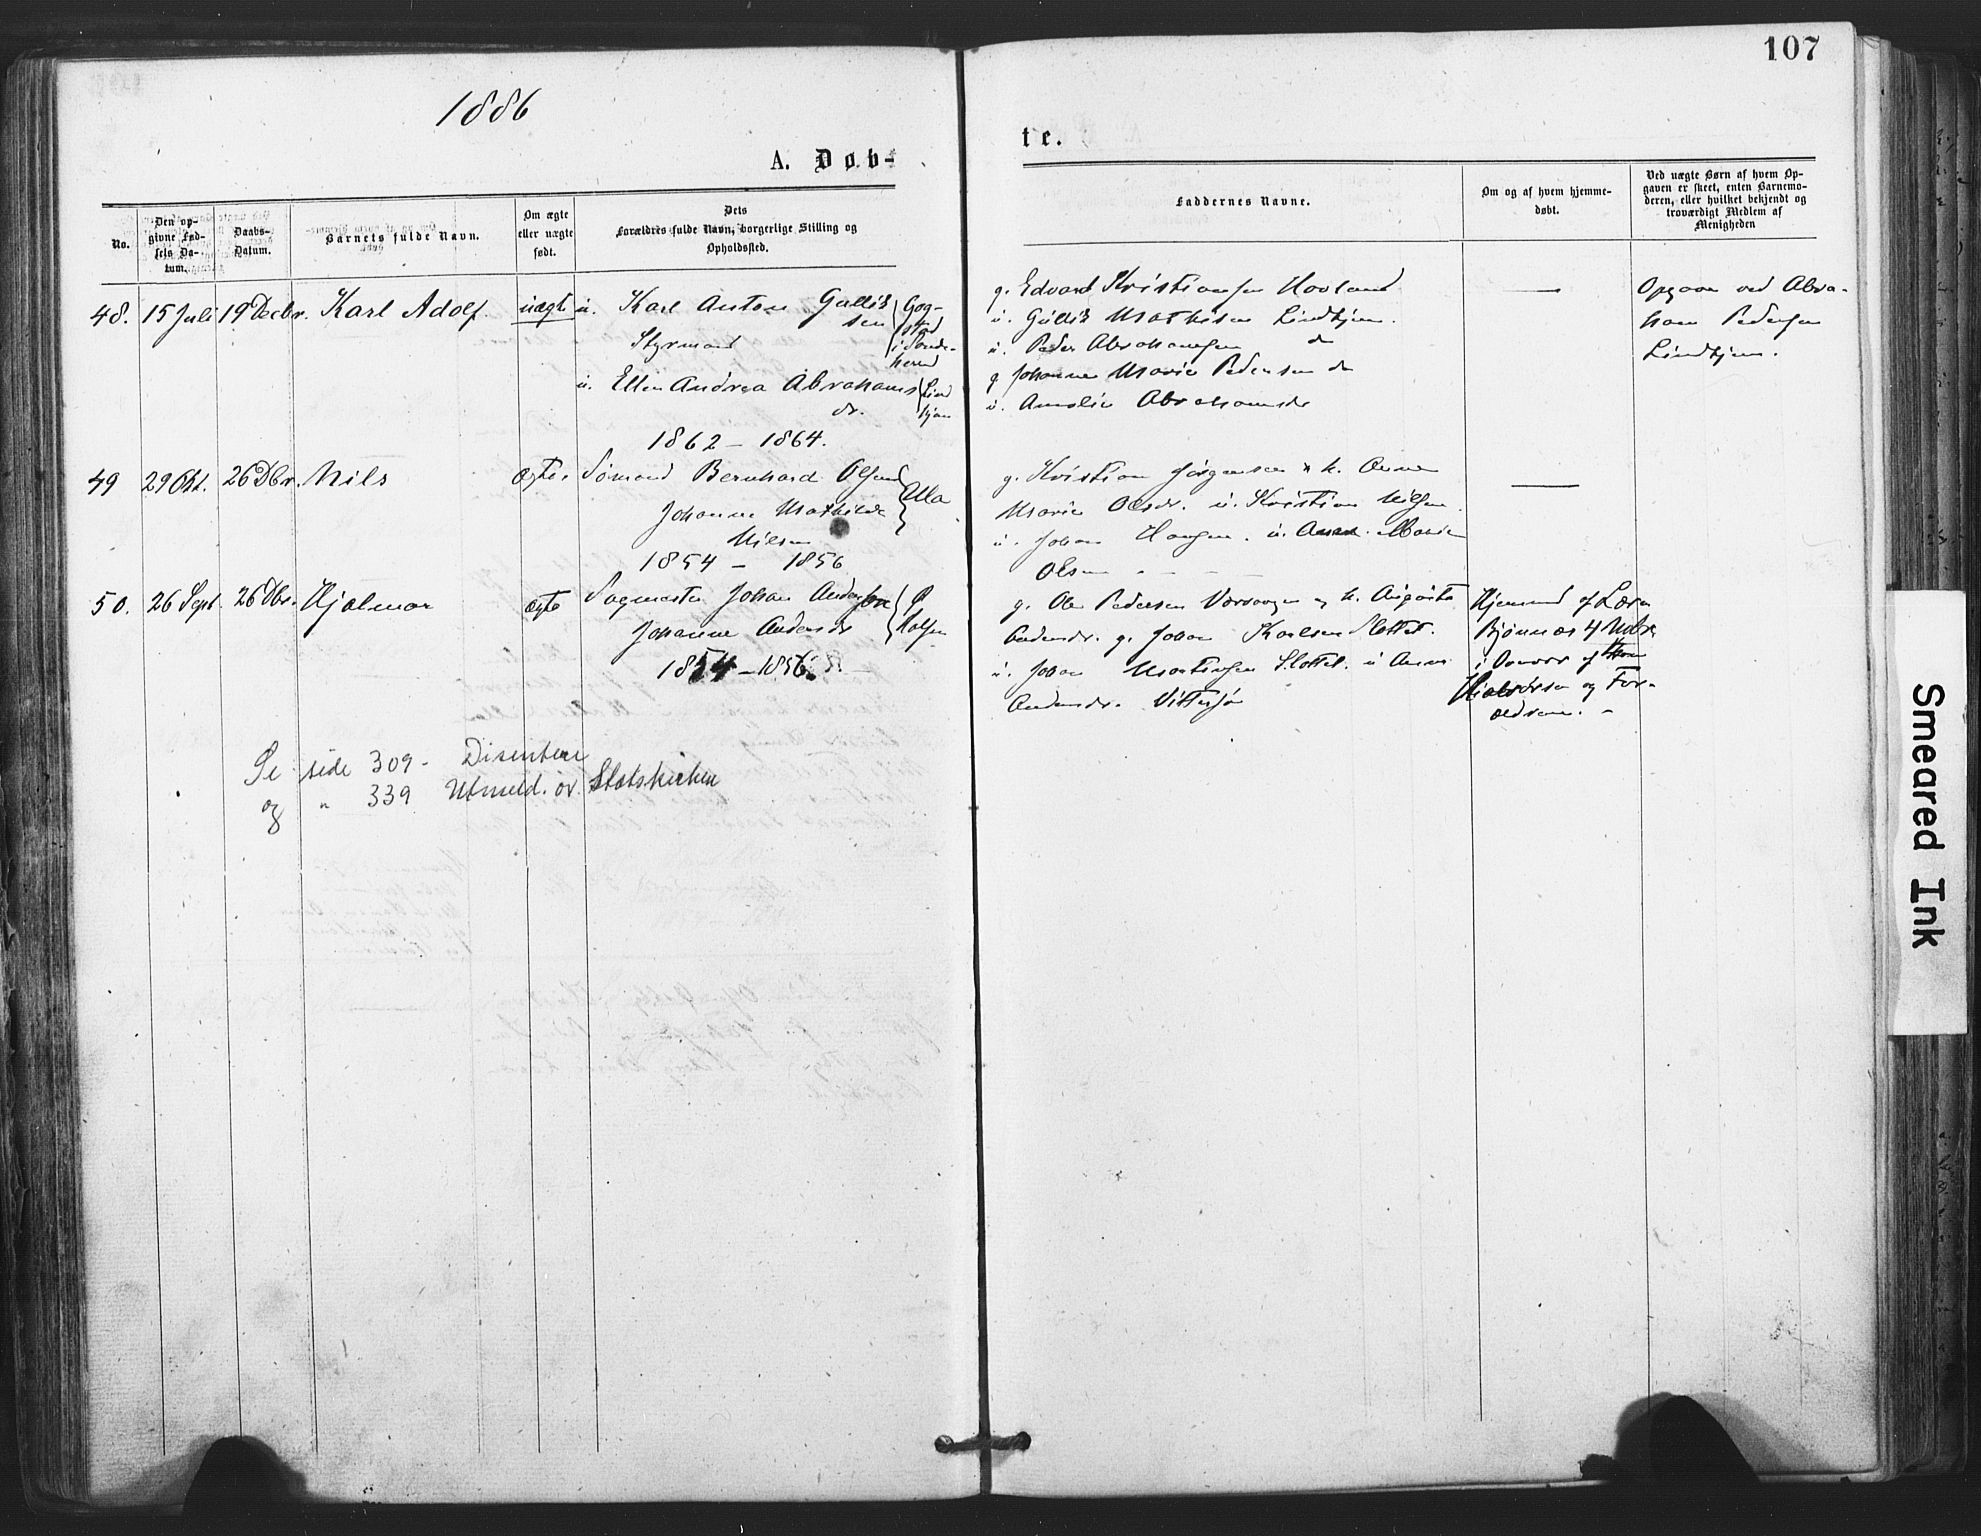 107
1886
A. Døb-
te.
No.
Den op-
givne Fød-
sels Da-
tum.
Daabs-
Datum.
Barnets fulde Navn.
Om ægte
eller uægte
født.
Dets
Forældres fulde Navn, borgerlige Stilling og
Opholdssted.
Faddernes Navne.
Om og af hvem hjemme-
døbt.
Ved uægte Børn af hvem Op-
gaven er skeet, enten Barnemo-
deren, eller hvilket bekjendt og
troværdigt Medlem af
Menigheden
48. 15 Juli 19 Decbr. Karl Adolf. uægte
u. Karl Anton Gullik
sen
Styrmand
Gog-
stad
i Sande-
herred
u. Ellen Andrea Abrahams
dr.
Lind
hjem
1862 - 1864.
g. Edvard Kristiansen Hovland
u. Gullik Mathisen Lindhjem.
u. Peder Abrahamsen do
g Johanne Marie Pedersen do
u. Amalie Abrahamsdr
Opgave ved Abra-
ham Pedersen
Lindhjem.
49 29 Okt. 26 Dbr. Nils ægte.
Sømand Bernhard Olsen
Johanne Mathilde
Nilsen
Ula
1854 - 1856
g. Kristian Jørgensen & k. Anne
Marie Olsdr. u. Kristian Nilsen.
u. Johan Hansen. u. Anne Marie
Olsen
50. 26 Sept. 26 Dbr. Hjalmar ægte
Sagmester Johan Andersen
Johanne Andersdr
Ø
Halsen
1854 - 1856
g. Ole Pedersen og k. Augusta
Andersdr. g. Johan Karlsen Slottet.
u. Johan Martinsen Slottet. u Anne
Andersdr. Vittersø
Hjemmed af Lærer
Bjønnes 4 Nvbr
i Nærvær af
Halvorsen og For-
ældrene.
Se side 309 - Disentere
og " 339 Utmeld. av Statskirken
Smeared Ink